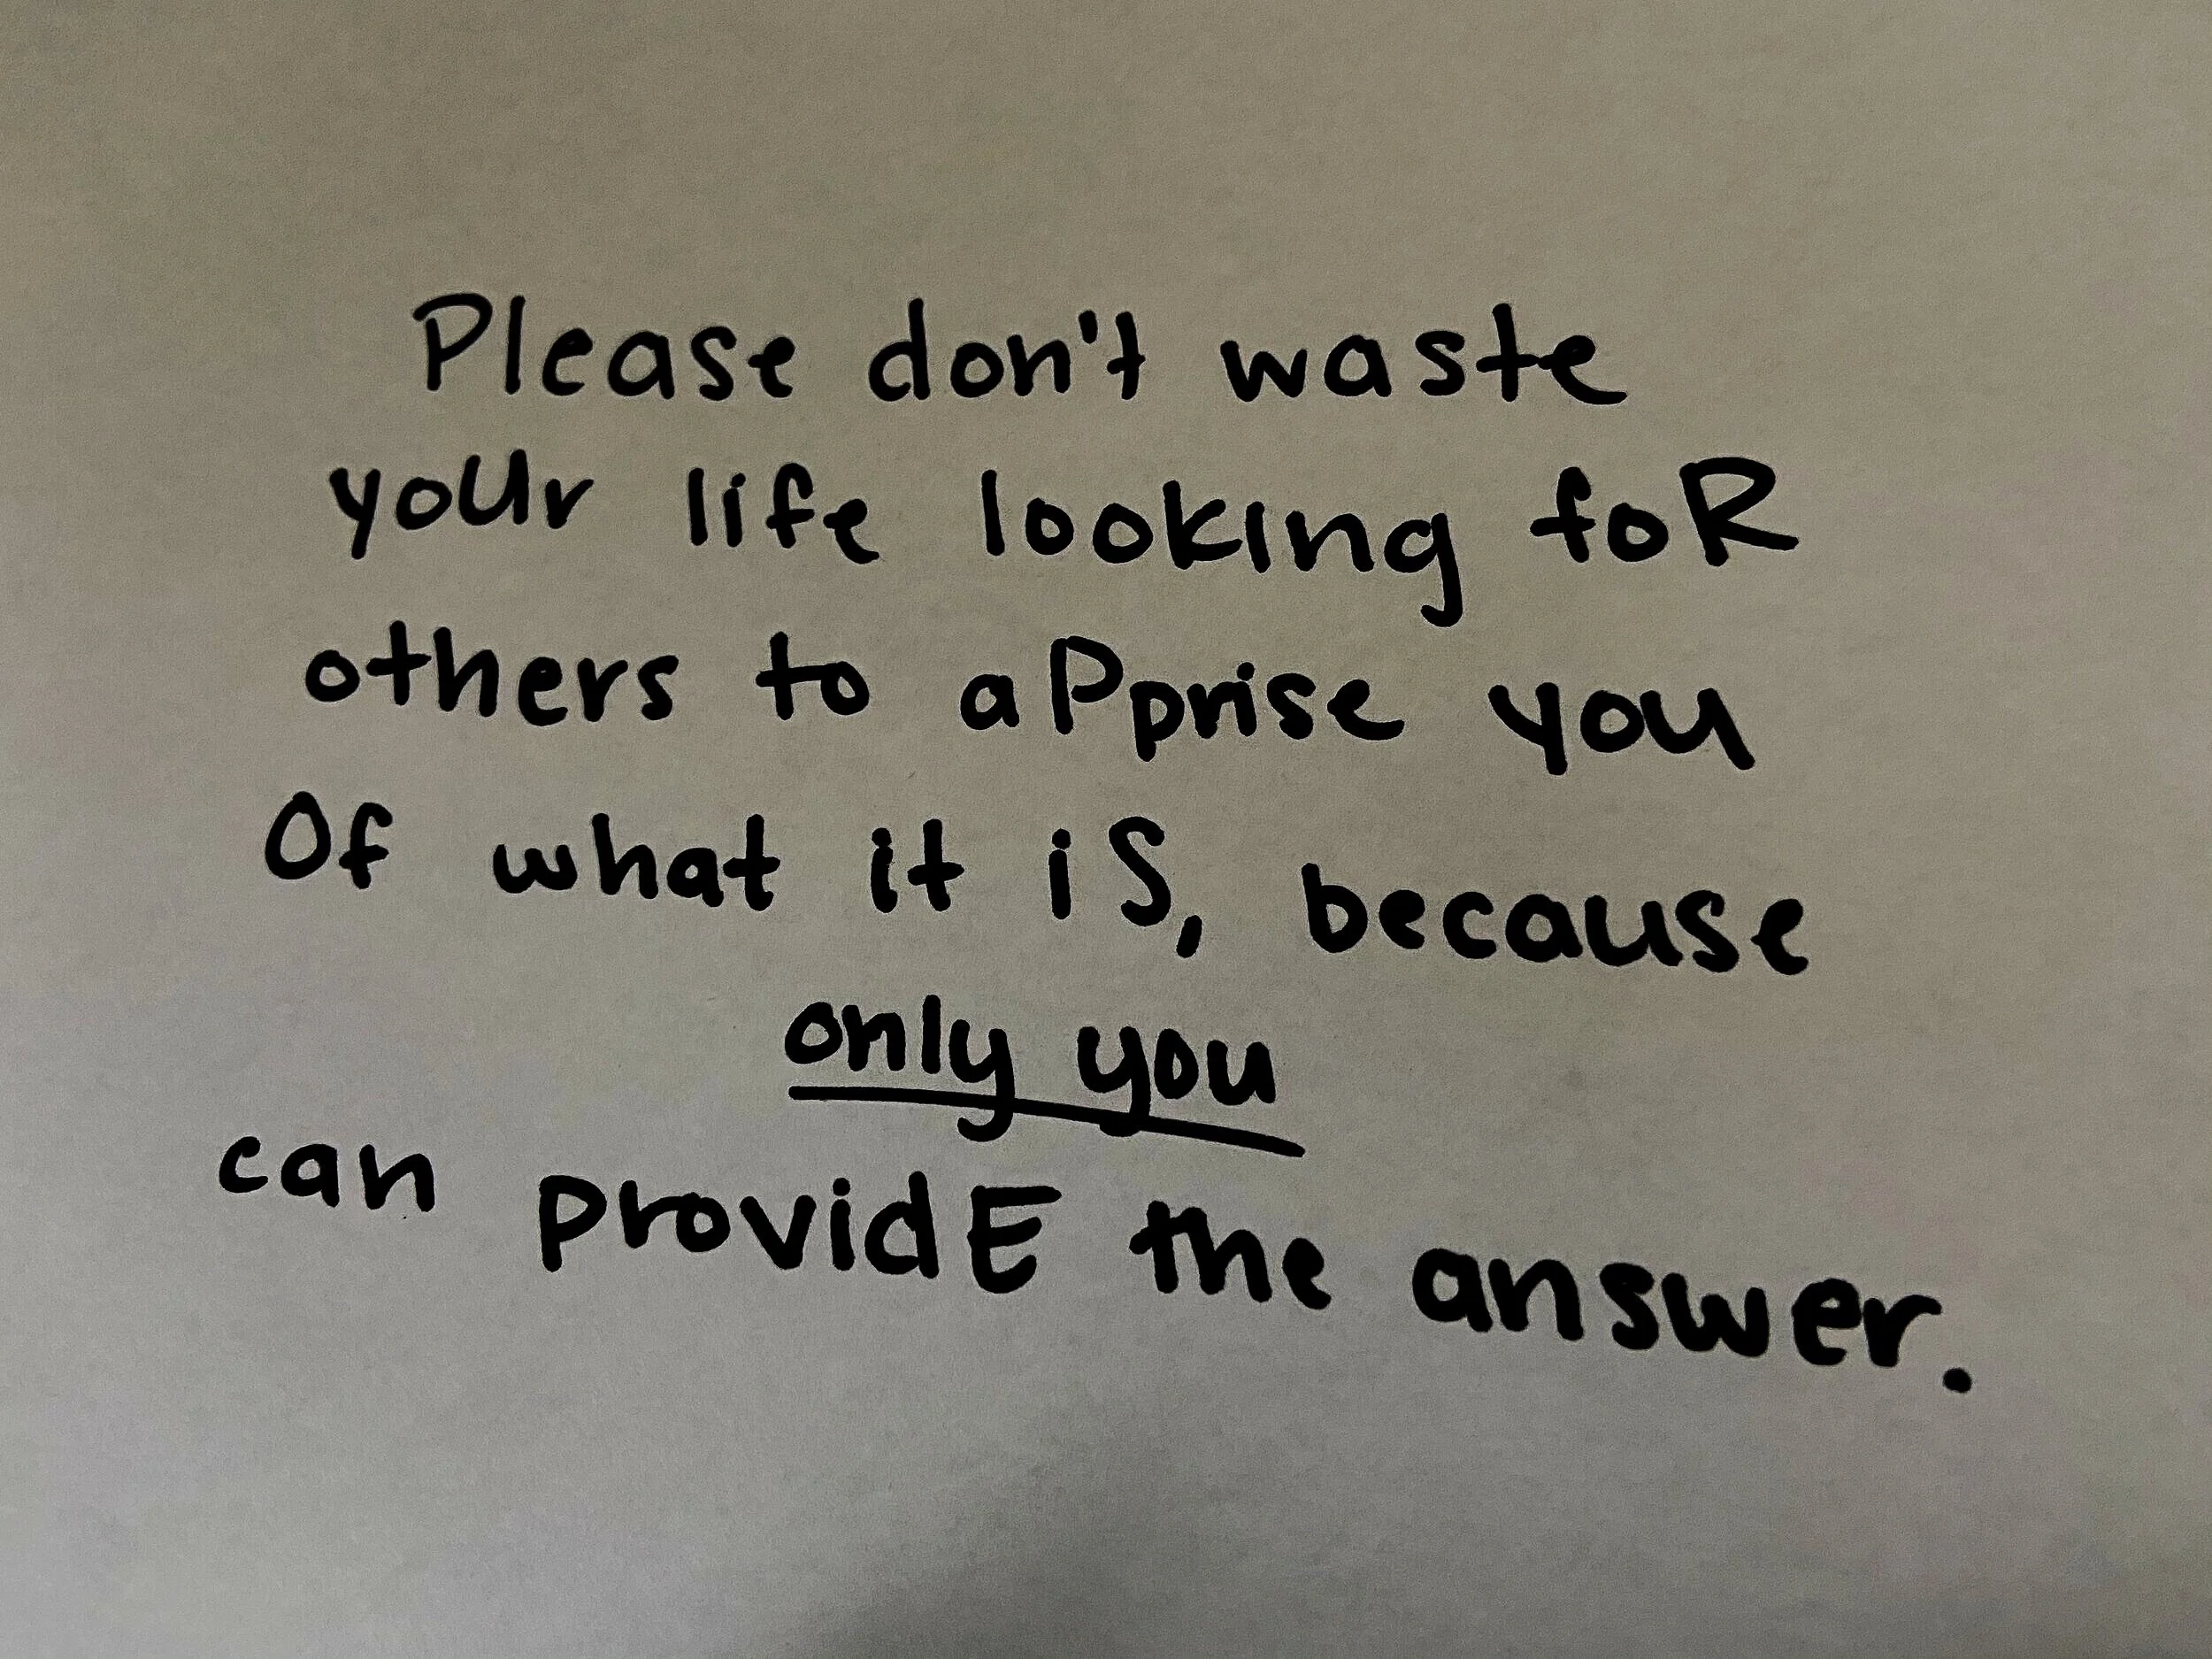 Please don't waste
yoUr life looking foR
others to aPprise you
Of what it iS, because
only you
can providE the answer.